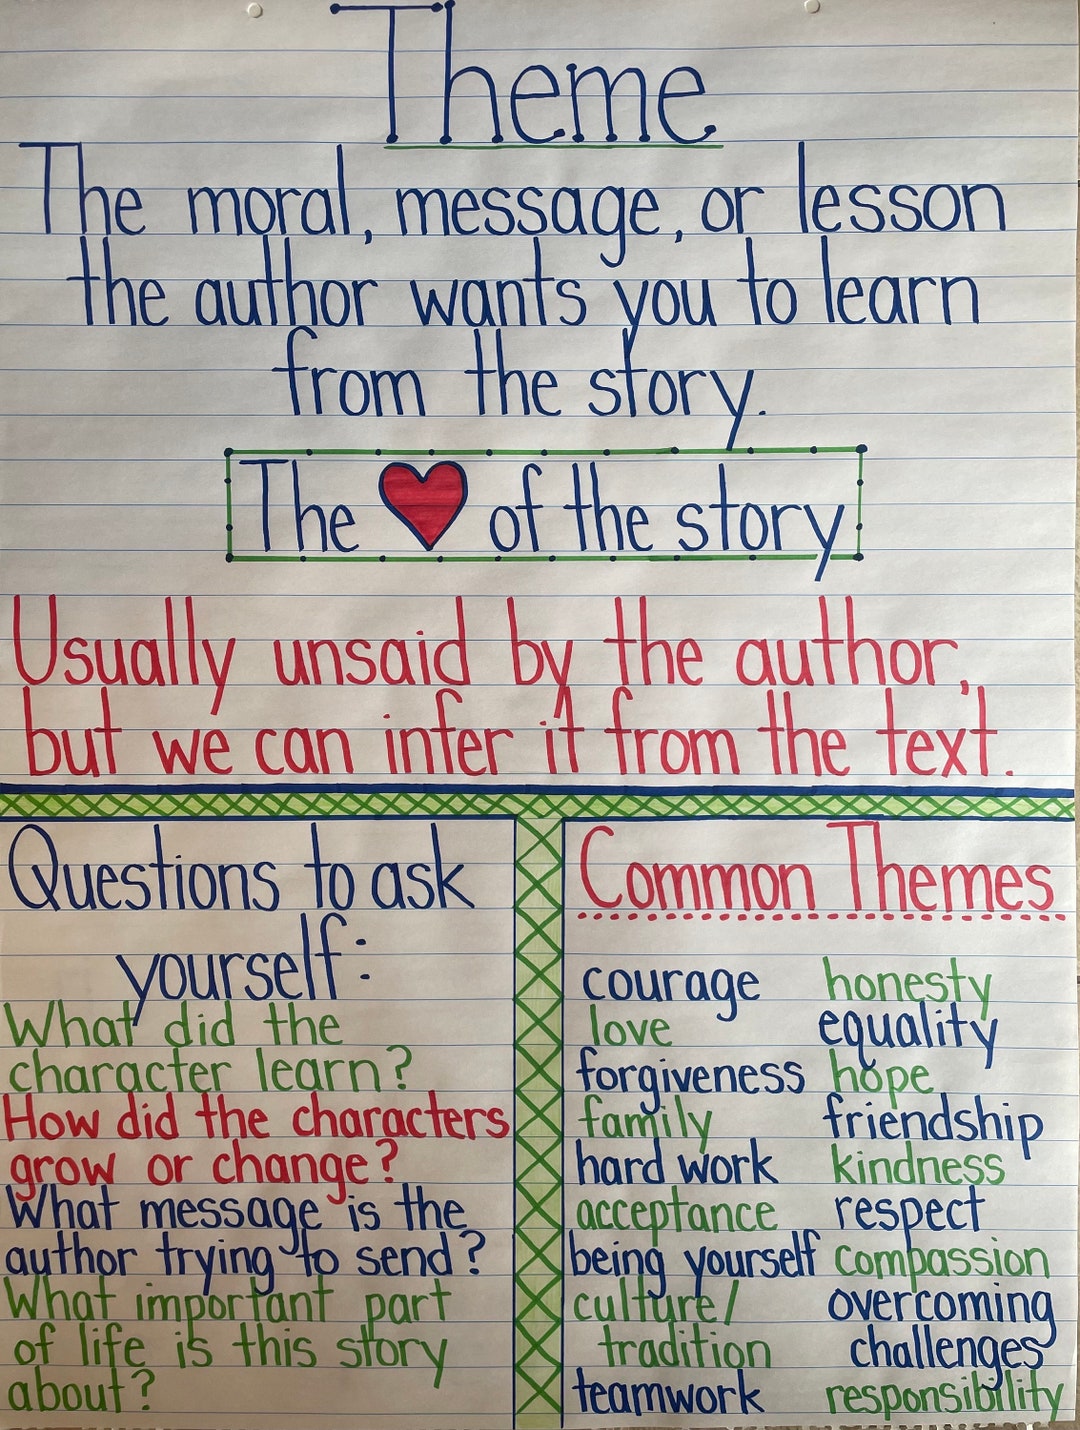 Theme
The moral, message, or lesson
the author wants you to learn
from the story.
The of the story
Usually unsaid by the author,
but we can infer it from the text.
Questions to ask
yourself:
What did the
character learn?
How did the characters
grow or change?
What message is the
author trying to send?
What important part
of life is this story
about?
Common Themes
courage
love
forgiveness
family
hard work
acceptance
being yourself
culture/
tradition
teamwork
honesty
equality
hope
friendship
kindness
respect
compassion
overcoming
challenges
responsibility